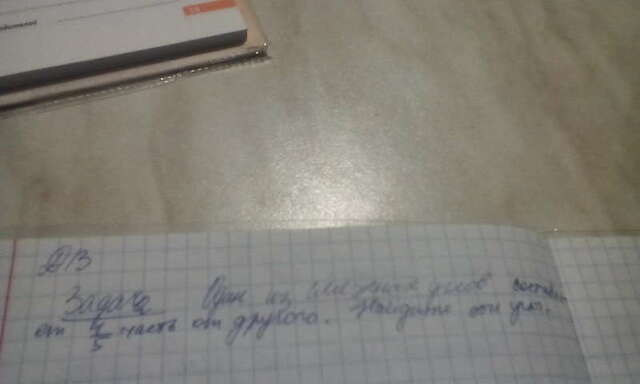 ДЗ
Задача Один из смежных углов составл
ет 4/5 часть от другого. Найдите эти углы.